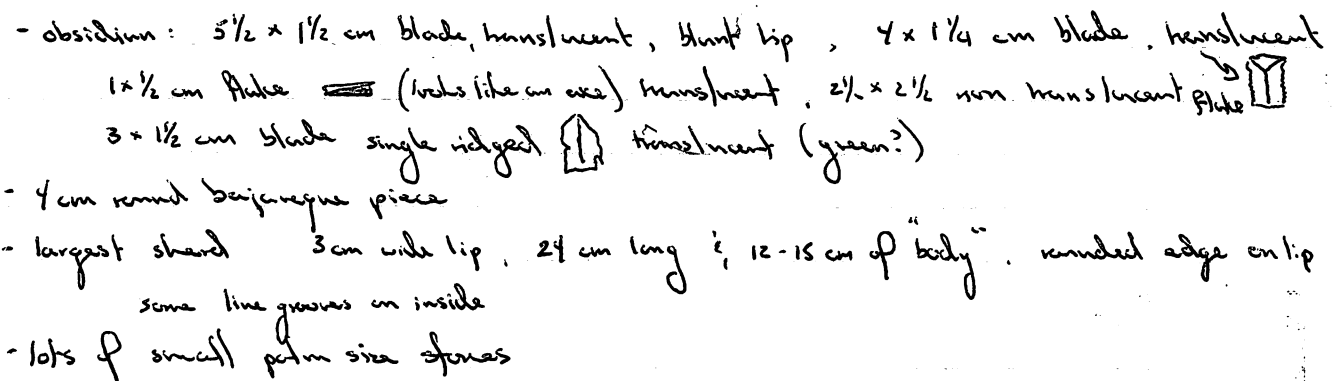 - obsidian: 5 1/2 x 1 1/2 cm blade, translucent, blunt tip, 4 x 1 1/4 cm blade, translucent
1 x 1/2 cm flake (looks like an axe) translucent, 2 1/2 x 2 1/2 non translucent flake
3 x 1 1/2 cm blade single ridged translucent (green?)
- 4 cm round bajareque piece
- largest sherd 3 cm wide lip, 24 cm long & 12-15 cm of "body", rounded edge on lip
some line grooves on inside
- lots of small palm size stones